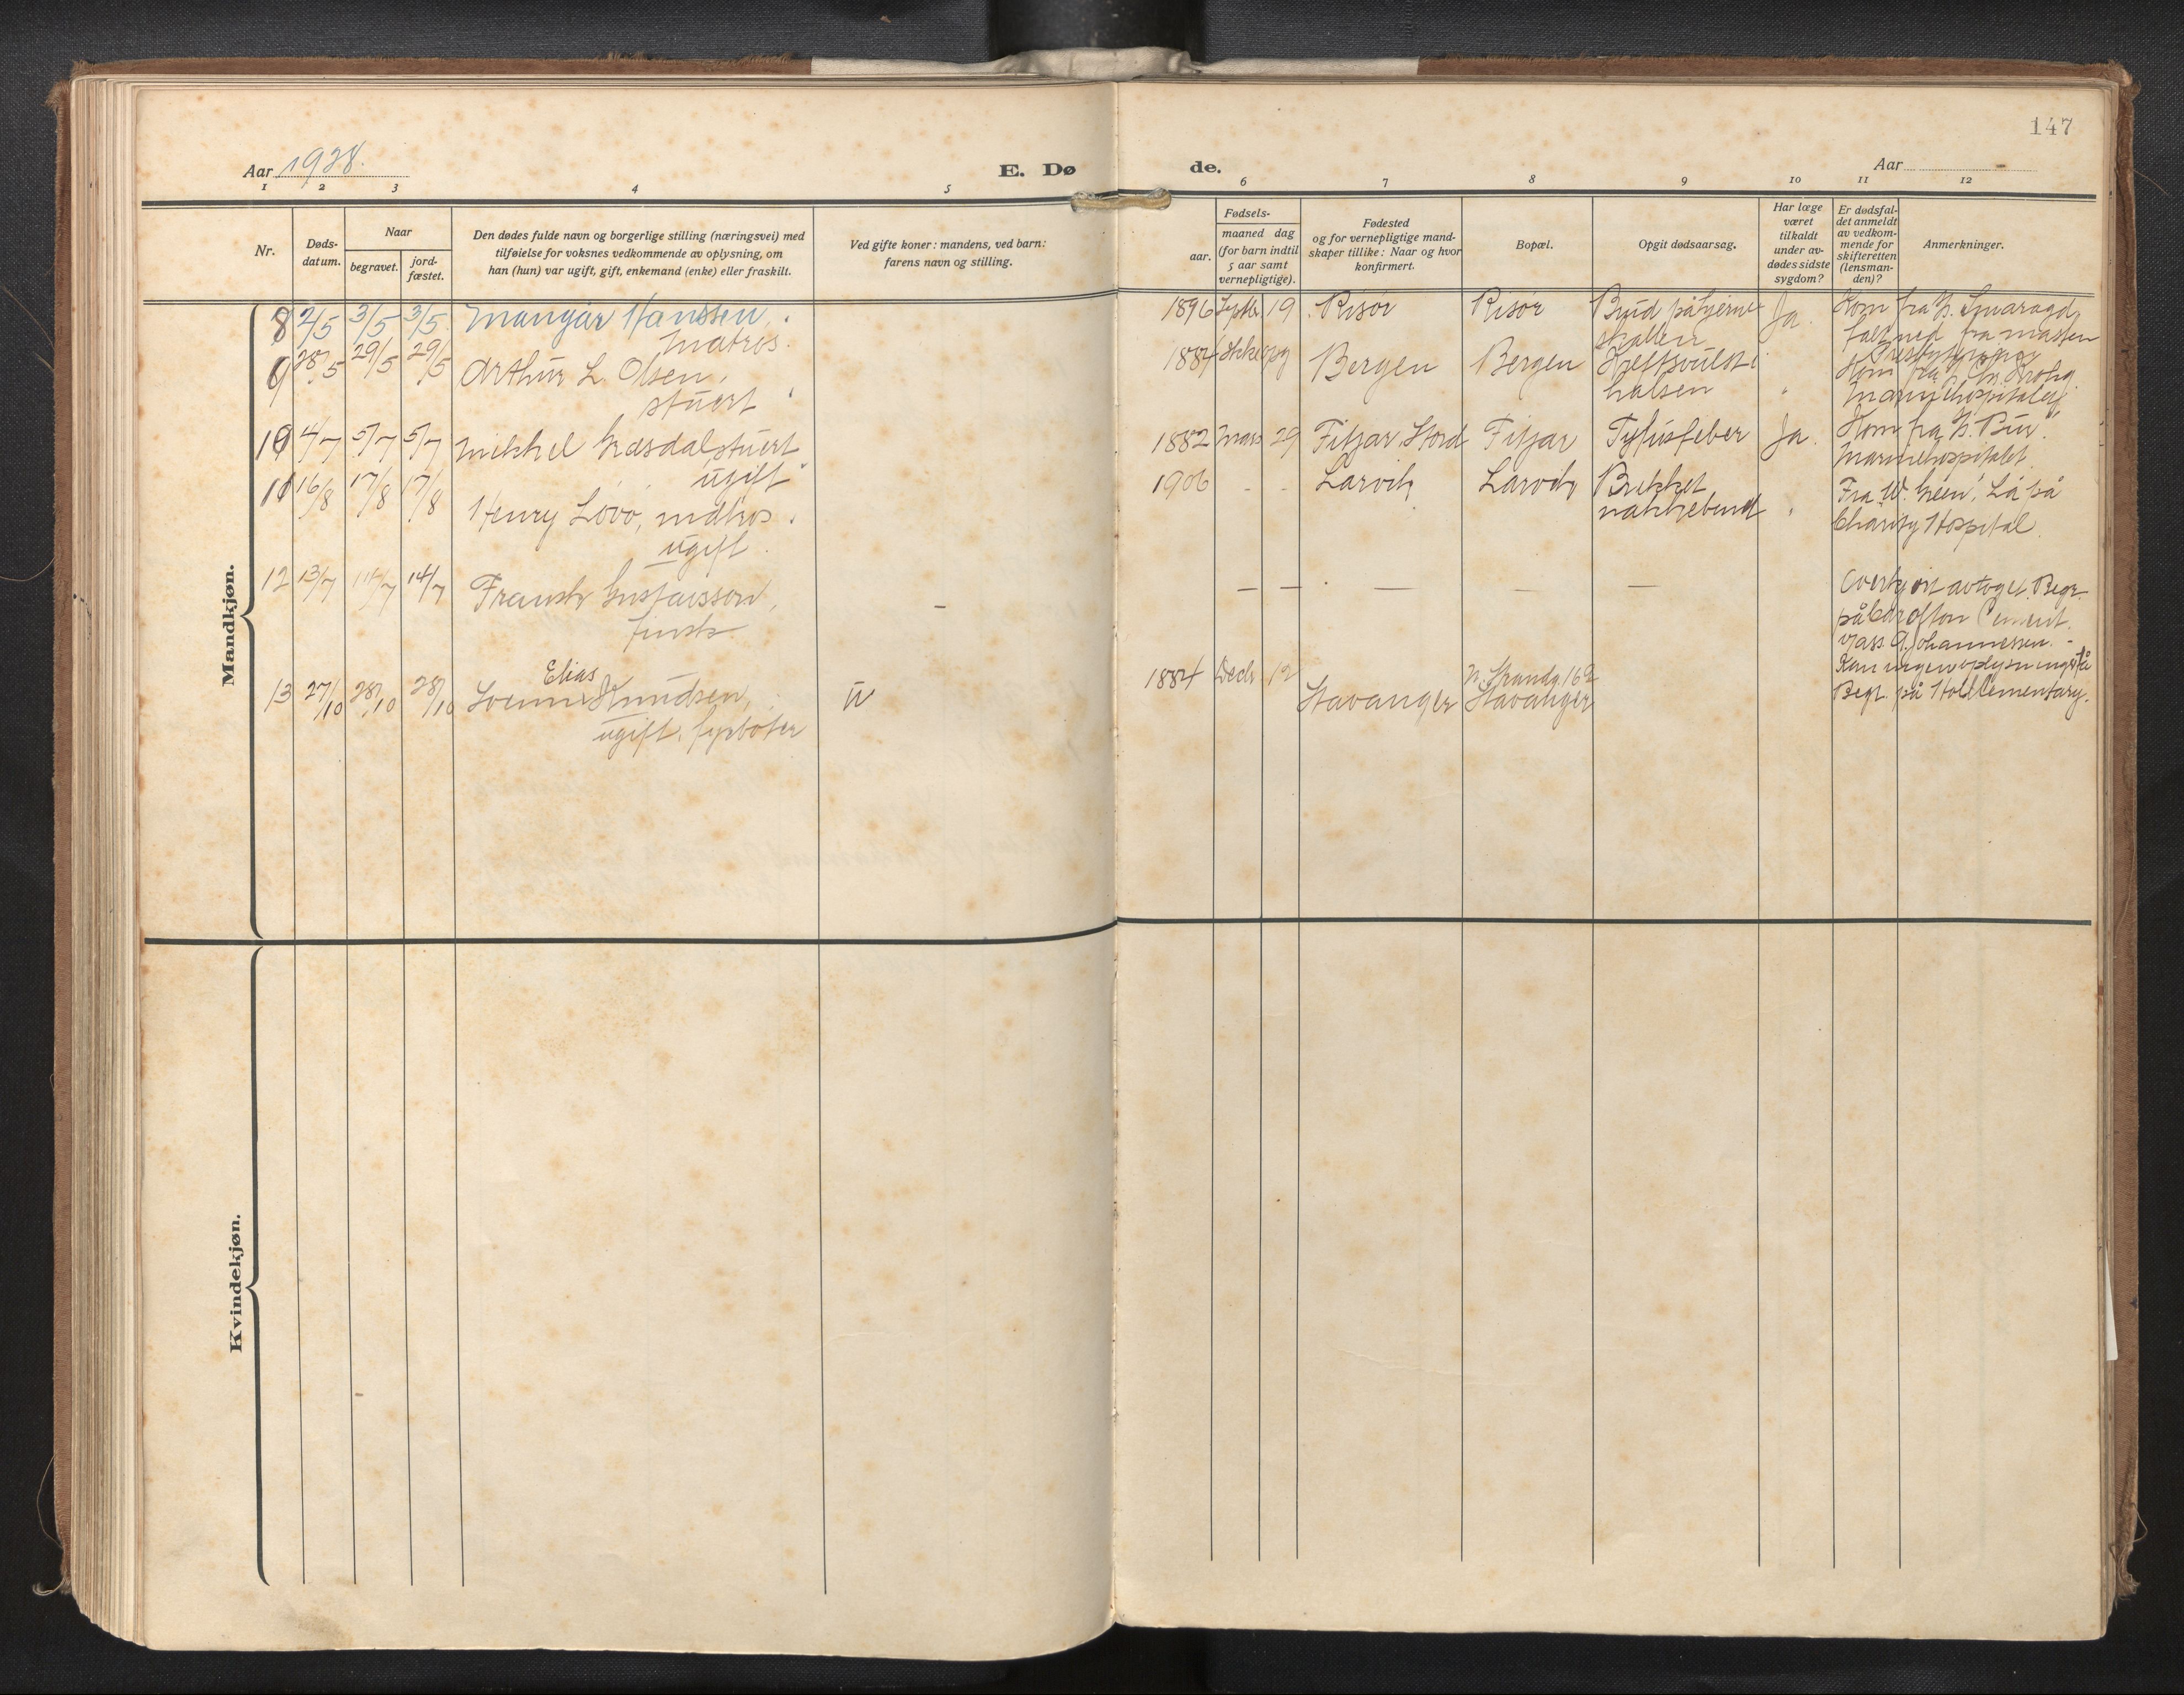 147
Aar 1928.
E. Dø
de.
Aar
1 2 3 4 5 6 7 8 9 10 11 12
Nr.
Døds-
datum.
Naar
begravet.
jord-
fæstet.
Den dødes fulde navn og borgerlige stilling (næringsvei) med
tilføielse for voksnes vedkommende av oplysning, om
han (hun) var ugift, gift, enkemand (enke) eller fraskilt.
Ved gifte koner: mandens, ved barn:
farens navn og stilling.
Fødsels-
aar.
maaned dag
(for barn indtil
5 aar samt
vernepligtige).
Fødested
og for vernepligtige mand-
skaper tillike: Naar og hvor
konfirmert.
Bopæl.
Opgit dødsaarsag.
Har læge
været
tilkaldt
under av-
dødes sidste
sygdom?
Er dødsfal-
det anmeldt
av vedkom-
mende for
skifteretten
(lensman-
den)?
Anmerkninger.
Mandkjøn.
8 2/5 3/5 3/5 Hanssen,
matros.
1896 19 Risør Risør Brud på hjerne-
skallen
Ja.
Kom fra Smaragd,
falt ned fra masten
9 28/5 29/5 29/5 Arthur L Olsen,
stuert
1884 Bergen Bergen Kreftsvulst i
halsen "
Kom fra Chr. Krohg.
Marinehospitalet
10 4/7 5/7 5/7 Mikkel stuert
ugift
1882 Mars 29 Fitjar Stord Fitjar Tyfusfeber Ja.
Kom fra
Marinehospitalet.
11 16/8 17/8 17/8 Henry Lövo, matros.
ugift.
1906 - - Larvik Larvik Brekket
nakkebend "
Fra W. Lå på
Charity Hospital.
12 13/7 14/7 14/7 Fransk Gustavsson,
finsk
- — — — — —
Overkjørt av toget. Begr.
på Cement.
v/ass. G. Johannessen. -
Kan ingen oplysninger få
13 27/10 28/10 28/10 Elias
Knudsen,
ugift. fyrbøter
1884 Decbr 12 Stavanger
N. Strandg. 162
Stavanger
Begr. på Holt Cementary.
Kvindekjøn.